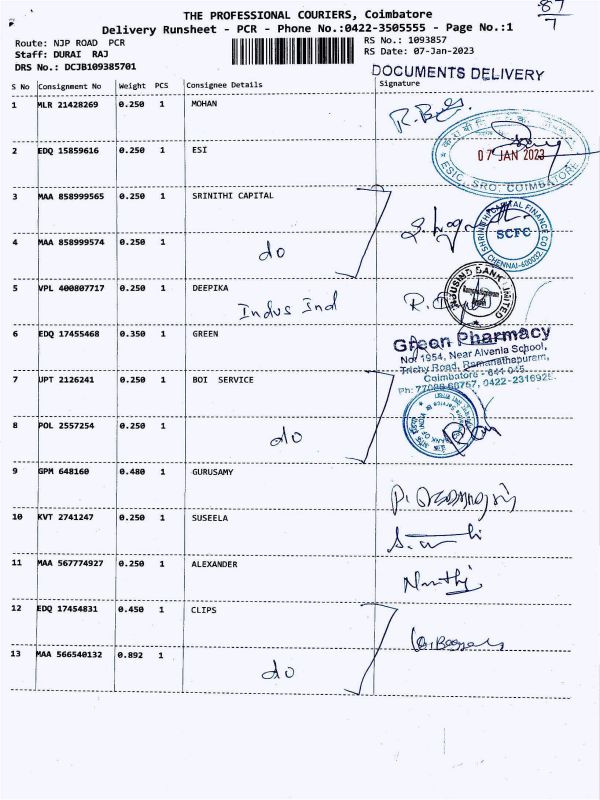 87
7
THE PROFESSIONAL COURIERS, Coimbatore
Delivery Runsheet - PCR - Phone No.:0422-3505555 - Page No.:1
Route: NJP ROAD PCR
RS No.: 1093857
Staff: DURAI RAJ
RS Date: 07-Jan-2023
DRS No.: DCJB109385701
DOCUMENTS DELIVERY
S No Consignment No Weight PCS Consignee Details Signature
1 MLR 21428269 0.250 1 MOHAN
2 EDQ 15859616 0.250 1 ESI
07 JAN 2023
ESIC, SRO, COIMBATORE
3 MAA 858999565 0.250 1 SRINITHI CAPITAL
SHRINITHI CAPITAL FINANCE CO
SCFC
CHENNAI-600002
4 MAA 858999574 0.250 1 do
5 VPL 400807717 0.250 1 DEEPIKA
Indus Ind
INDUSIND BANK LIMITED
6 EDQ 17455468 0.350 1 GREEN
Green Pharmacy
No: 1954, Near Alvenia School,
Trichy Road, Ramanathapuram,
Coimbatore - 641 045.
0422-2316925.
7 UPT 2126241 0.250 1 BOI SERVICE
8 POL 2557254 0.250 1 do
9 GPM 648160 0.480 1 GURUSAMY
10 KVT 2741247 0.250 1 SUSEELA
11 MAA 567774927 0.250 1 ALEXANDER
12 EDQ 17454831 0.450 1 CLIPS
13 MAA 566540132 0.892 1 do